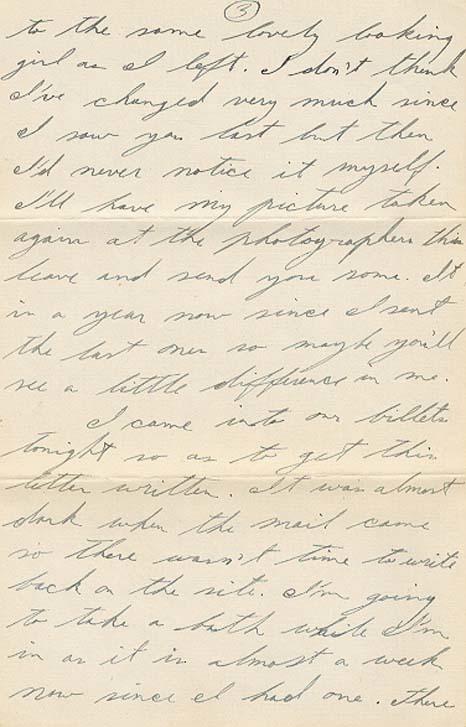 3
to the same lovely looking
girl as I left. I don't think
I've changed very much since
I saw you last but then
I'd never notice it myself.
I'll have my picture taken
again at the photographers this
leave and send you some. It
is a year now since I sent
the last ones so maybe you'll
see a little difference in me.
I came into our billets
tonight so as to get this
letter written. It was almost
dark when the mail came
so there wasn't time to write
back on the site. I'm going
to take a bath while I'm
in as it is almost a week
now since I had one. There